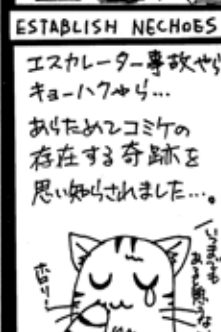 ESTABLISH NECHOES
エスカレーター事故やら
キョーハクやら…
あらためてコミケの
存在する奇跡を
思い知らされました…。
ホロリ…